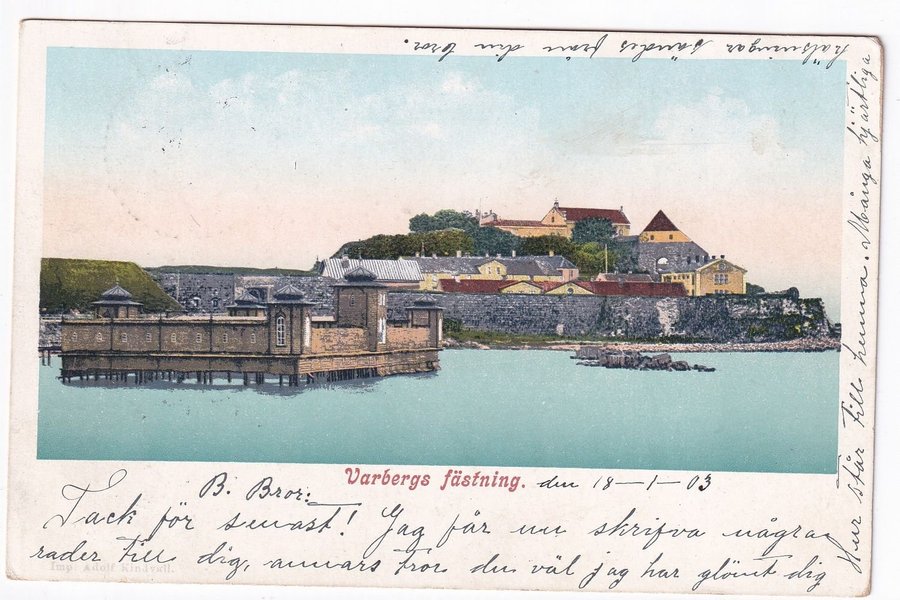 Varbergs fästning.
den 18-1-03
B. Bror:
Tack för senast! Jag får nu skrifva några
rader till dig, annars tror du väl jag har glömt dig
Hur står till hemma. Många hjärtliga
hälsningar sändes från din bror.
Imp. Adolf Kindvall.